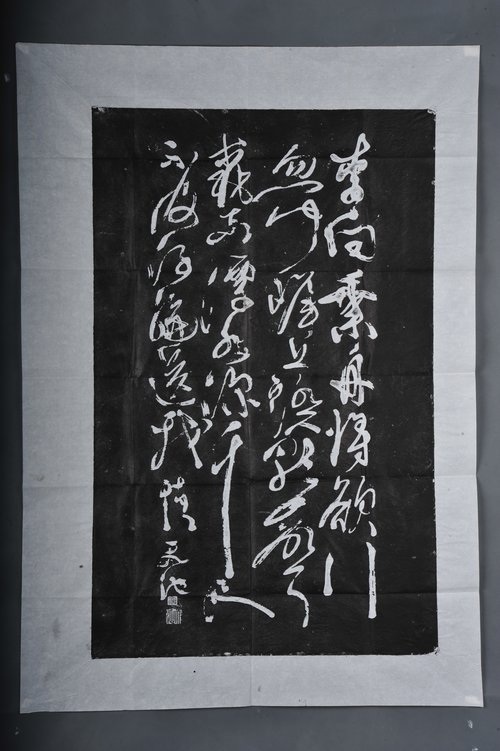 李白乘舟將欲行
忽聞岸上踏歌聲
桃花潭水深千尺
不及汪倫送我情 天池